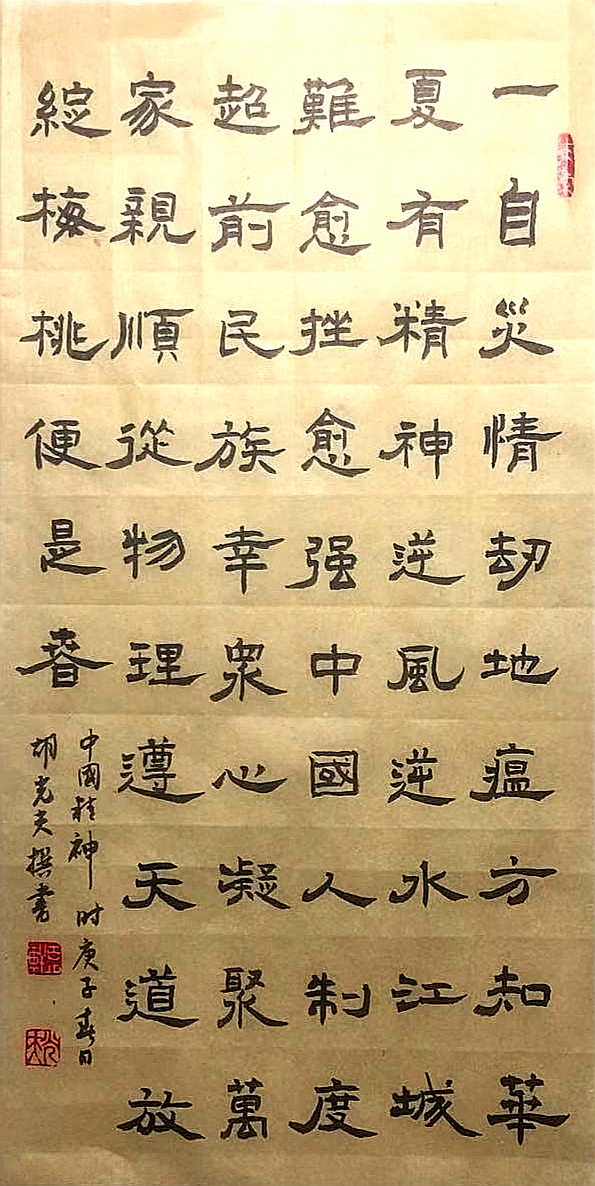 一自災情劫地瘟方知華
夏有精神逆風逆水江城
難愈挫愈强中國人制度
超前民族幸衆心凝聚萬
家親順從物理遵天道放
綻梅桃便是春
中國精神时庚子春日
胡克夫撰書